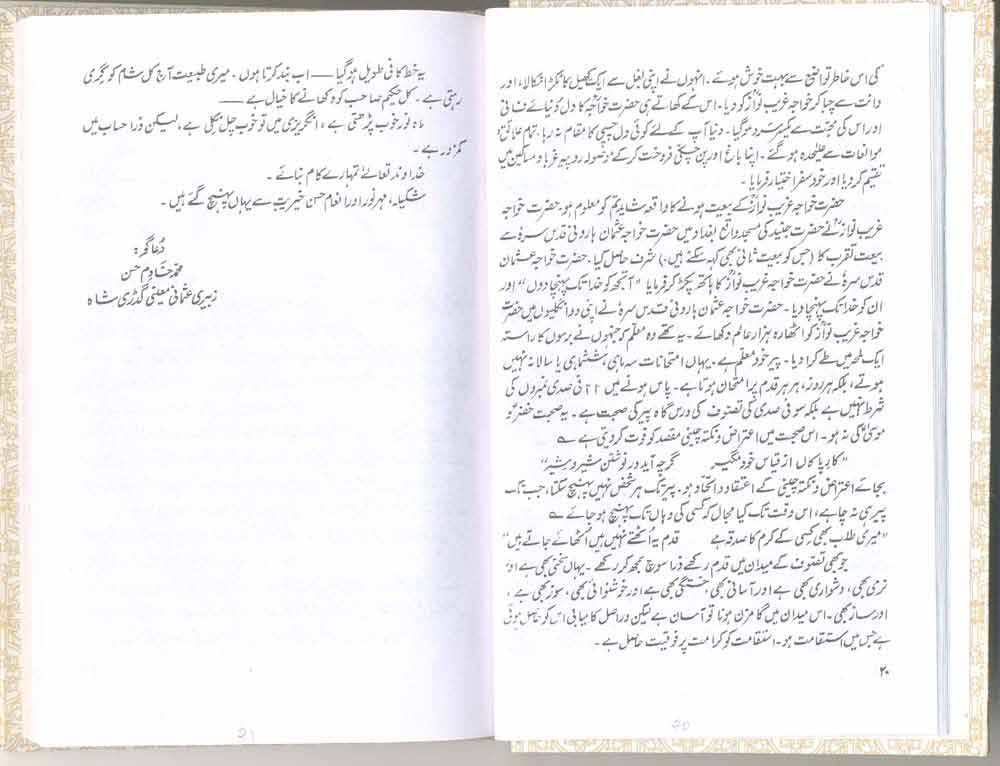 کی اس خاطر تواضع سے بہت خوش ہوئے۔ انہوں نے اپنی بغل سے ایک کھیل کا ٹکڑا نکالا، اور
دانت سے چبا کر خواجہ غریب نوازؒ کو دیا۔ اس کے کھاتے ہی حضرت خواجہؒ کا دل دُنیائے فانی
اور اس کی محبّت سے یکسر سرد ہوگیا۔ دنیا آپ کے لئے کوئی دل چسپی کا مقام نہ رہا، تمام علائق و
موانعات سے علیٰحدہ ہو گئے۔ اپنا باغ اور پن چکّی فروخت کرکے وصولہ روپیہ غربا و مساکین میں
تقیم کردیا اور خود سفر اختیار فرمایا۔
حضرت خواجہ غریب نوازؒ کے بیعت ہونے کا واقعہ شاید تم کو معلوم ہو۔ حضرت خواجہ
غریب نوازؒ نے حضرت جنید کی مسجد واقع بغداد میں حضرت خواجہ عثمان ہارونی قدس سرہٗ سے
بیعت تقرب کا (جس کو بیعت ثانی بھی کہہ سکتے ہیں۔) شرف حاصل کیا۔ حضرت خواجہ عثمان
قدس سرہٗ نے خواجہ غریب نوازؒ کا ہاتھ پکڑ کر فرمایا "آ تجھ کو خدا تک پہنچا دوں" اور
ان کو خدا تک پہنچا دیا۔ حضرت خواجہ عثمان ہارونی قدس سرہٗ نے اپنی دو انگلیوں میں حضرت
خواجہ غریب نوازؒ کو اٹھارہ ہزار عالم دکھائے۔ یہ تھے وہ معلم کہ جنہوں نے برسوں کا راستہ
ایک لمحہ میں طے کرا دیا۔ پیر خود معلم ہے۔ یہاں امتحانات سہ ماہی، ششماہی یا سالانہ نہیں
ہوتے، بلکہ ہر روز، ہر ہر قدم پر امتحان ہوتا ہے۔ پاس ہونے میں ۲۲ فی صدی نمبروں کی
شرط نہیں ہے بلکہ سو فی صدی کی تصوّف کی درس گاہ پیر کی صحبت ہے۔ یہ صحبت خضرؑ و
موسیٰؑ کی نہ ہو۔ اس صحبت میں اعتراض و نکتہ چینی مقصد کو فوت کر دیتی ہے ؎
"کارِ پاکاں از قیاس خود مگیر گرچہ آید در نوشتن شیر و شِیر"
بجائے اعتراض و نکتہ چینی کے اعتقاد و اتحاد ہو۔ پیر تک ہر شخص نہیں پہنچ سکتا، جب تک
پیر ہی نہ چاہے، اس وقت تک کیا مجال کہ کسی کی وہاں تک پہنچ ہو جائے ؎
"میری طلب بھی کسی کے کرم کا صدقہ ہے قدم یہ اُٹھتے نہیں ہیں اُٹھائے جاتے ہیں"
جو بھی تصوّف کے میدان میں قدم رکھے ذرا سوچ سمجھ کر رکھے۔ یہاں سختی بھی ہے اور
نرمی بھی، دشواری بھی ہے اور آسانی بھی، خستگی بھی ہے اور خوشنوائی بھی، سوز بھی ہے،
اور ساز بھی۔ اس میدان میں گامزن ہونا تو آسان ہے لیکن دراصل کامیابی اس کو حاصل ہوتی
ہے جس میں استقامت ہو۔ استقامت کو کرامت پر فوقیت حاصل ہے۔
۲۰
20
یہ خط کافی طویل ہوگیا ــــ اب بند کرتا ہوں۔ میری طبیعت آج کل شام کو گِری
رہتی ہے۔ کل حکیم صاحب کو دکھانے کا خیال ہے ــــ
ماہ نور خوب پڑھتی ہے، انگریزی میں تو خوب چل نکلی ہے، لیکن ذرا حساب میں
کمزور ہے۔
خداوند تعالےٰ تمہارے کام بنائے۔
شکیلہ، مہر نور اور انعام حسن خیریت سے یہاں پہنچ گئے ہیں۔
دُعا گو:
محمّد خادم حسن
زبیری عثمانی معینی گُدڑی شاہ
21